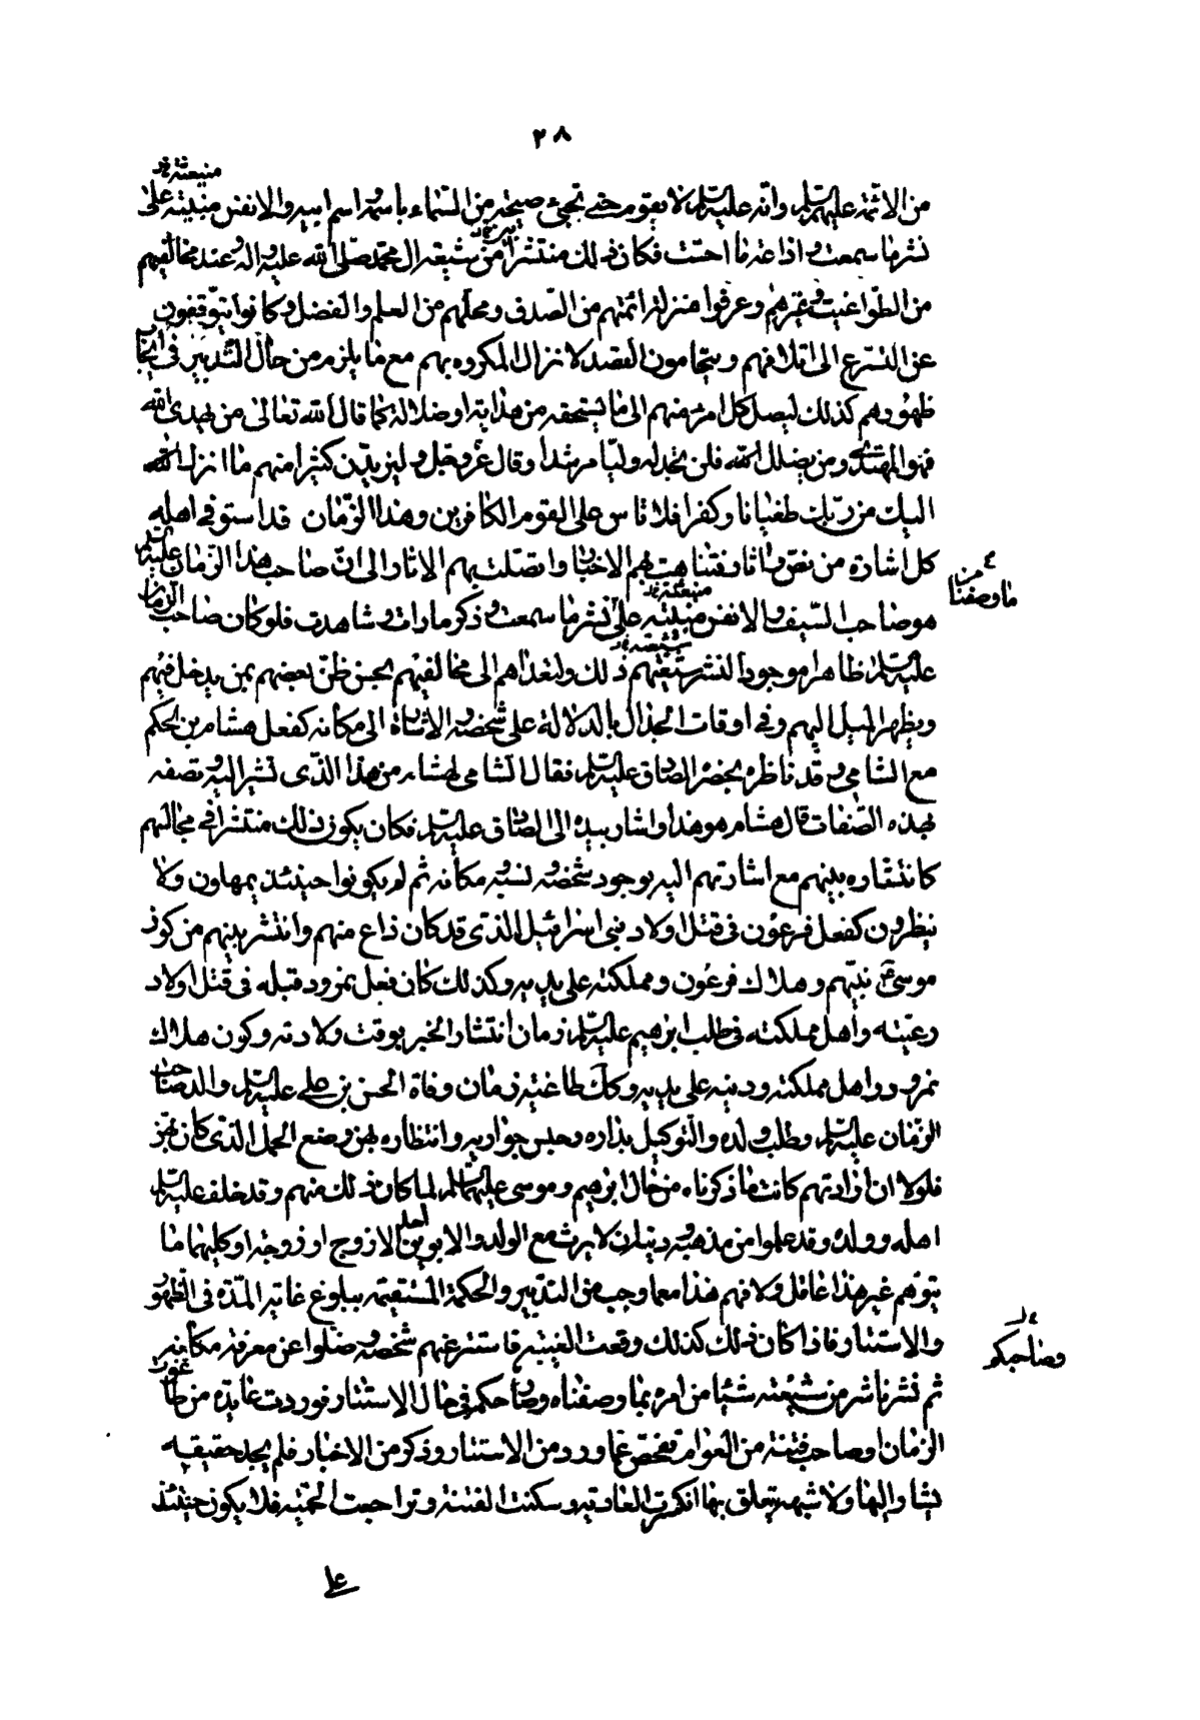 ٢٨
منبعثة خ
من الائمة عليهم السلم وانه عليه السلم لا يقوم حتى تجئ صيحة من السماء باسمه واسم ابيه والانفس منبثة على
نشر ما سمعت واذاعة ما احست فكان ذلك منتشرا من شيعة ال محمد صلى الله عليه واله وعند مخالفيهم
من الطواغيت وغيرهم وعرفوا منزلة ائمتهم من الصدق ومحلهم من العلم والفضل وكانوا يتوقفون
عن التسرع الى اتلافهم ويتحامون القصد لانزال المكروه بهم مع ما يلزم من حال التدبير في ايجاب
ظهورهم كذلك ليصل كل امرء منهم الى ما يستحقه من هداية او ضلالة كما قال الله تعالى من يهدى الله
فهو المهتد ومن يضلل الله فلن تجد له وليا مرشدا وقال عز وجل وليزيدن كثيرا منهم ما انزل الله
اليك من ربك طغيانا وكفرا فلا تاس على القوم الكافرين وهذا الزمان قد استوفى اهله
كل اشارة من نص واثار فتناهت بهم الاخبار واتصلت بهم الاثار الى ان صاحب هذا الزمان عليه السلم
ما وصفنا
هو صاحب السيف والانفس منبثة على نشر ما سمعت وذكر ما رات وشاهدت فلو كان صاحب الزمان
عليه السلم ظاهرا موجودا لنشر شيعتهم ذلك ولتعداهم الى مخالفيهم بحسن ظن بعضهم بمن يدخل فيهم
ويظهر الميل اليهم وفي اوقات الجدال بالدلالة على شخصه والاشارة الى مكانه كفعل هشام بن الحكم
مع الشامي وقد ناظره بحضرة الصادق عليه السلم فقال الشامي لهشام من هذا الذى تشير اليه وتصفه
بهذه الصفات قال هشام هو هذا واشار بيده الى الصادق عليه السلم فكان يكون ذلك منتشرا في مجالسهم
كانتشاره بينهم مع اشارتهم اليه بوجود شخصه ونسبه ومكانه ثم لم يكونوا حينئذ يمهلون ولا
ينظرون كفعل فرعون في قتل اولاد بنى اسرائيل للذى قد كان ذاع منهم وانتشر بينهم من كون
موسى ع نبيهم وهلاك فرعون ومملكته على يديه وكذلك كان فعل نمرود قبله في قتل اولاد
رعيته واهل مملكته في طلب ابرهيم عليه السلم زمان انتشار الخبر بوقت ولادته وكون هلاك
نمرود واهل مملكته ودينه على يديه وكذلك طاغية زمان وفاة الحسن بن علي عليه السلم والد صاحب
الزمان عليه السلم وطلب ولده والتوكيل بداره وحبس جواريه وانتظاره بهن وضع الحمل الذى كان بهن
فلولا ان ارادتهم كانت ما ذكرناه من حال ابرهيم وموسى عليهما السلم لما كان ذلك منهم وقد خلف عليه السلم
اهله وولده وقد علموا من مذهبه ودينه ان لا يرث مع الولد والابوين احد الا زوج او زوجة او كليهما ما
يتوهم غير هذا عاقل ولا فهم هذا مع ما وجب من التدبير والحكمة المستقيمة ببلوغ غاية المدة في الظهور
والاستتار فاذا كان ذلك كذلك وقعت الغيبة فاستتر عنهم شخصه وضلوا عن معرفة مكانه
ثم نشر ناشر من شيعته شيئا من امره بما وصفناه وصاحبكم في حال الاستتار فوردت عادية من طاغوت
وصاحبكم
الزمان او صاحب فتنة من العوام تفحص عما ورد من الاستتار وذكر من الاخبار فلم يجد حقيقة
يشار اليها ولا شبهة يتعلق بها انكسرت العادية وسكنت الفتنة وتراجعت الحمية فلا يكون حينئذ
على